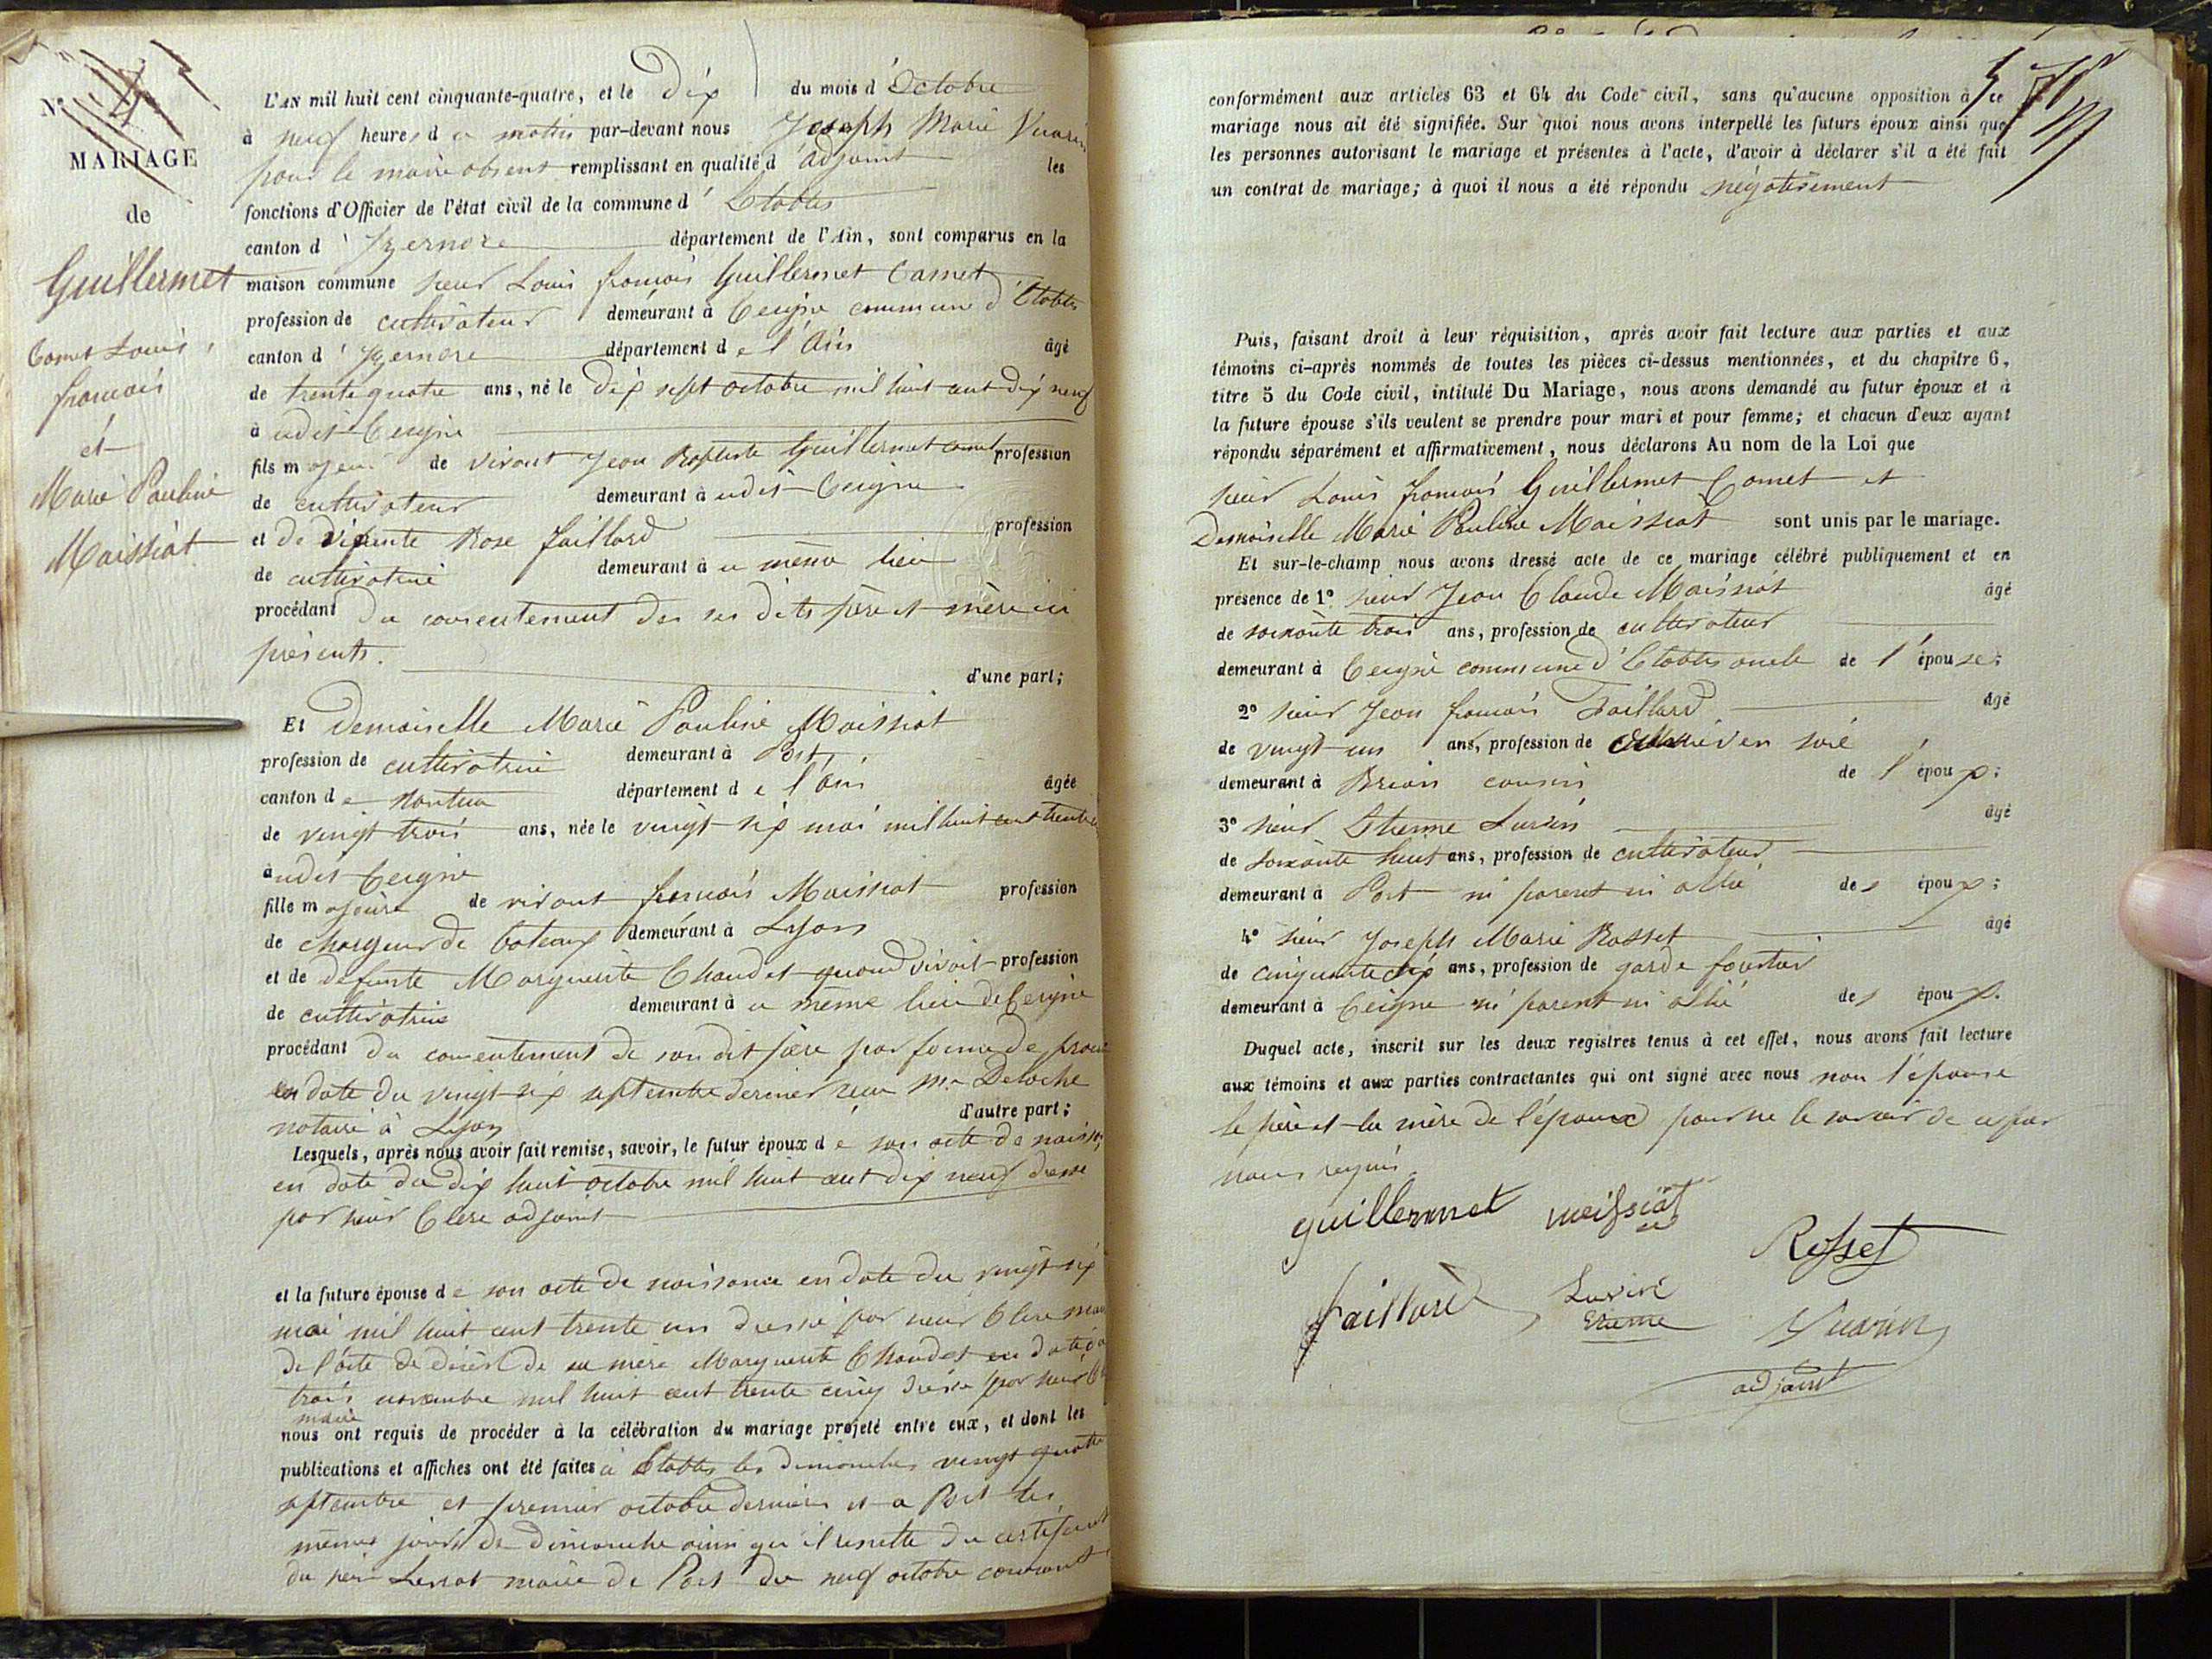 N° 4
MARIAGE
de
Guillermet
Comet Louis,
francois
et
Marie Pauline
Maissiat
L'AN mil huit cent cinquante-quatre, et le Dix du mois d'Octobre
à neuf heures du matin par-devant nous Joseph Marie Vuarin
pour le maire absent remplissant en qualité d'adjoint les
fonctions d'Officier de l'état civil de la commune d'Etables
canton d'Izernore département de l'Ain, sont comparus en la
maison commune sieur Louis francois Guillermet Comet
profession de cultivateur demeurant à Ceigne commune d'Etables
canton d'Izernore département de l'Ain âgé
de trente quatre ans, né le dix sept octobre mil huit cent dix neuf
à udit Ceigne
fils majeur de vivant Jean Baptiste Guillermet comet profession
de cultivateur demeurant à udit Ceigne
et de vivante Rose faillard profession
de cultivatrice demeurant à u même lieu
procédant du consentement des ses dits père et mère ici
présents.
d'une part;
Et Demoiselle Marie Pauline Maissiat
profession de cultivatrice demeurant à Port
canton de Nantua département de l'Ain âgée
de vingt trois ans, née le vingt six mai mil huit cent trente
à udit Ceigne
fille majeure de vivant francois Maissiat profession
de chargeur de bateaux demeurant à Lyon
et de défunte Marguerite Chaudet quand vivait profession
de cultivatrice demeurant à u même lieu de Ceigne
procédant du consentement de son dit père par forme de
en date du vingt six septembre dernier reçu Me Deloche
notaire à Lyon
d'autre part;
Lesquels, après nous avoir fait remise, savoir, le futur époux de son acte de naiss
en date du dix huit octobre mil huit cent dix neuf dressé
par sieur Clerc adjoint
et la future épouse de son acte de naissance en date du vingt six
mai mil huit cent trente un dressé par sieur Clerc maire
de l'acte de décès de sa mère Marguerite Chaudet en date du
trois novembre mil huit cent trente cinq dressé par sieur
maire
nous ont requis de procéder à la célébration du mariage projeté entre eux, et dont les
publications et affiches ont été faites à Etables les dimanches vingt quatre
septembre et premier octobre derniers et a Port les
mêmes jours de dimanche ainsi qu'il resulte du certificat
du sieur maire de Port du neuf octobre courant
conformément aux articles 63 et 64 du Code civil, sans qu'aucune opposition à ce
mariage nous ait été signifiée. Sur quoi nous avons interpellé les futurs époux ainsi que
les personnes autorisant le mariage et présentes à l'acte, d'avoir à déclarer s'il a été fait
un contrat de mariage; à quoi il nous a été répondu négativement
Puis, faisant droit à leur réquisition, après avoir fait lecture aux parties et aux
témoins ci-après nommés de toutes les pièces ci-dessus mentionnées, et du chapitre 6,
titre 5 du Code civil, intitulé Du Mariage, nous avons demandé au futur époux et à
la future épouse s'ils veulent se prendre pour mari et pour femme; et chacun d'eux ayant
répondu séparément et affirmativement, nous déclarons Au nom de la Loi que
sieur Louis francois Guillermet Comet et
Demoiselle Marie Pauline Maissiat sont unis par le mariage.
Et sur-le-champ nous avons dressé acte de ce mariage célébré publiquement et en
présence de 1° sieur Jean Claude Maissiat âgé
de soixante trois ans, profession de cultivateur
demeurant à Ceigne commune d'Etables oncle de l'épouse;
2° sieur Jean francois Faillard âgé
de vingt un ans, profession de en soie
demeurant à Brion cousin de l'époux;
3° sieur Etienne Luvin âgé
de soixante huit ans, profession de cultivateur
demeurant à Port ni parent ni allié des époux;
4° sieur Joseph Marie Rosset âgé
de cinquante six ans, profession de garde forestier
demeurant à Ceigne ni parent ni allié des époux.
Duquel acte, inscrit sur les deux registres tenus à cet effet, nous avons fait lecture
aux témoins et aux parties contractantes qui ont signé avec nous non l'épouse
le père et la mère de l'époux pour ne le savoir de ce par
nous requis
guillermet meissiat
Rosset
faillard
Luvin
Etienne
Vuarin
adjoint